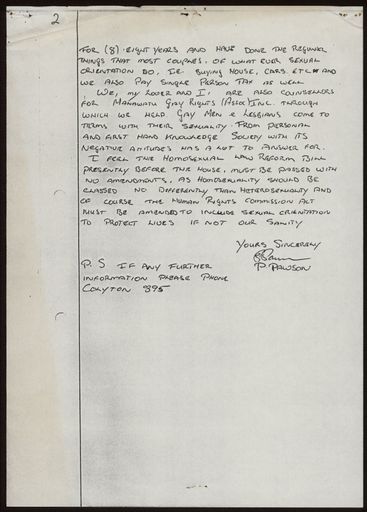 2
FOR (8) EIGHT YEARS AND HAVE DONE THE REGULAR
THINGS THAT MOST COUPLES, OF WHAT EVER SEXUAL
ORIENTATION DO, I.E. BUYING HOUSE, CARS. ETC. AND
WE ALSO PAY SINGLE PERSON TAX AS WELL.
WE, MY LOVER AND I, ARE ALSO COUNSELLORS
FOR MANAWATU GAY RIGHTS (ASSOC) INC. THROUGH
WHICH WE HELP GAY MEN & LESBIANS COME TO
TERMS WITH THEIR SEXUALITY. FROM PERSONAL
AND FIRST HAND KNOWLEDGE SOCIETY WITH ITS
NEGATIVE ATTITUDES HAS A LOT TO ANSWER FOR.
I FEEL THE HOMOSEXUAL LAW REFORM BILL
PRESENTLY BEFORE THE HOUSE, MUST BE PASSED WITH
NO AMENDMENTS, AS HOMOSEXUALITY SHOULD BE
CLASSED NO DIFFERENTLY THAN HETEROSEXUALITY AND
OF COURSE THE HUMAN RIGHTS COMMISSION ACT
MUST BE AMENDED TO INCLUDE SEXUAL ORIENTATION
TO PROTECT LIVES IF NOT OUR SANITY
YOURS SINCERELY
P. PAWSON
P.S IF ANY FURTHER
INFORMATION PLEASE PHONE
COLYTON 895